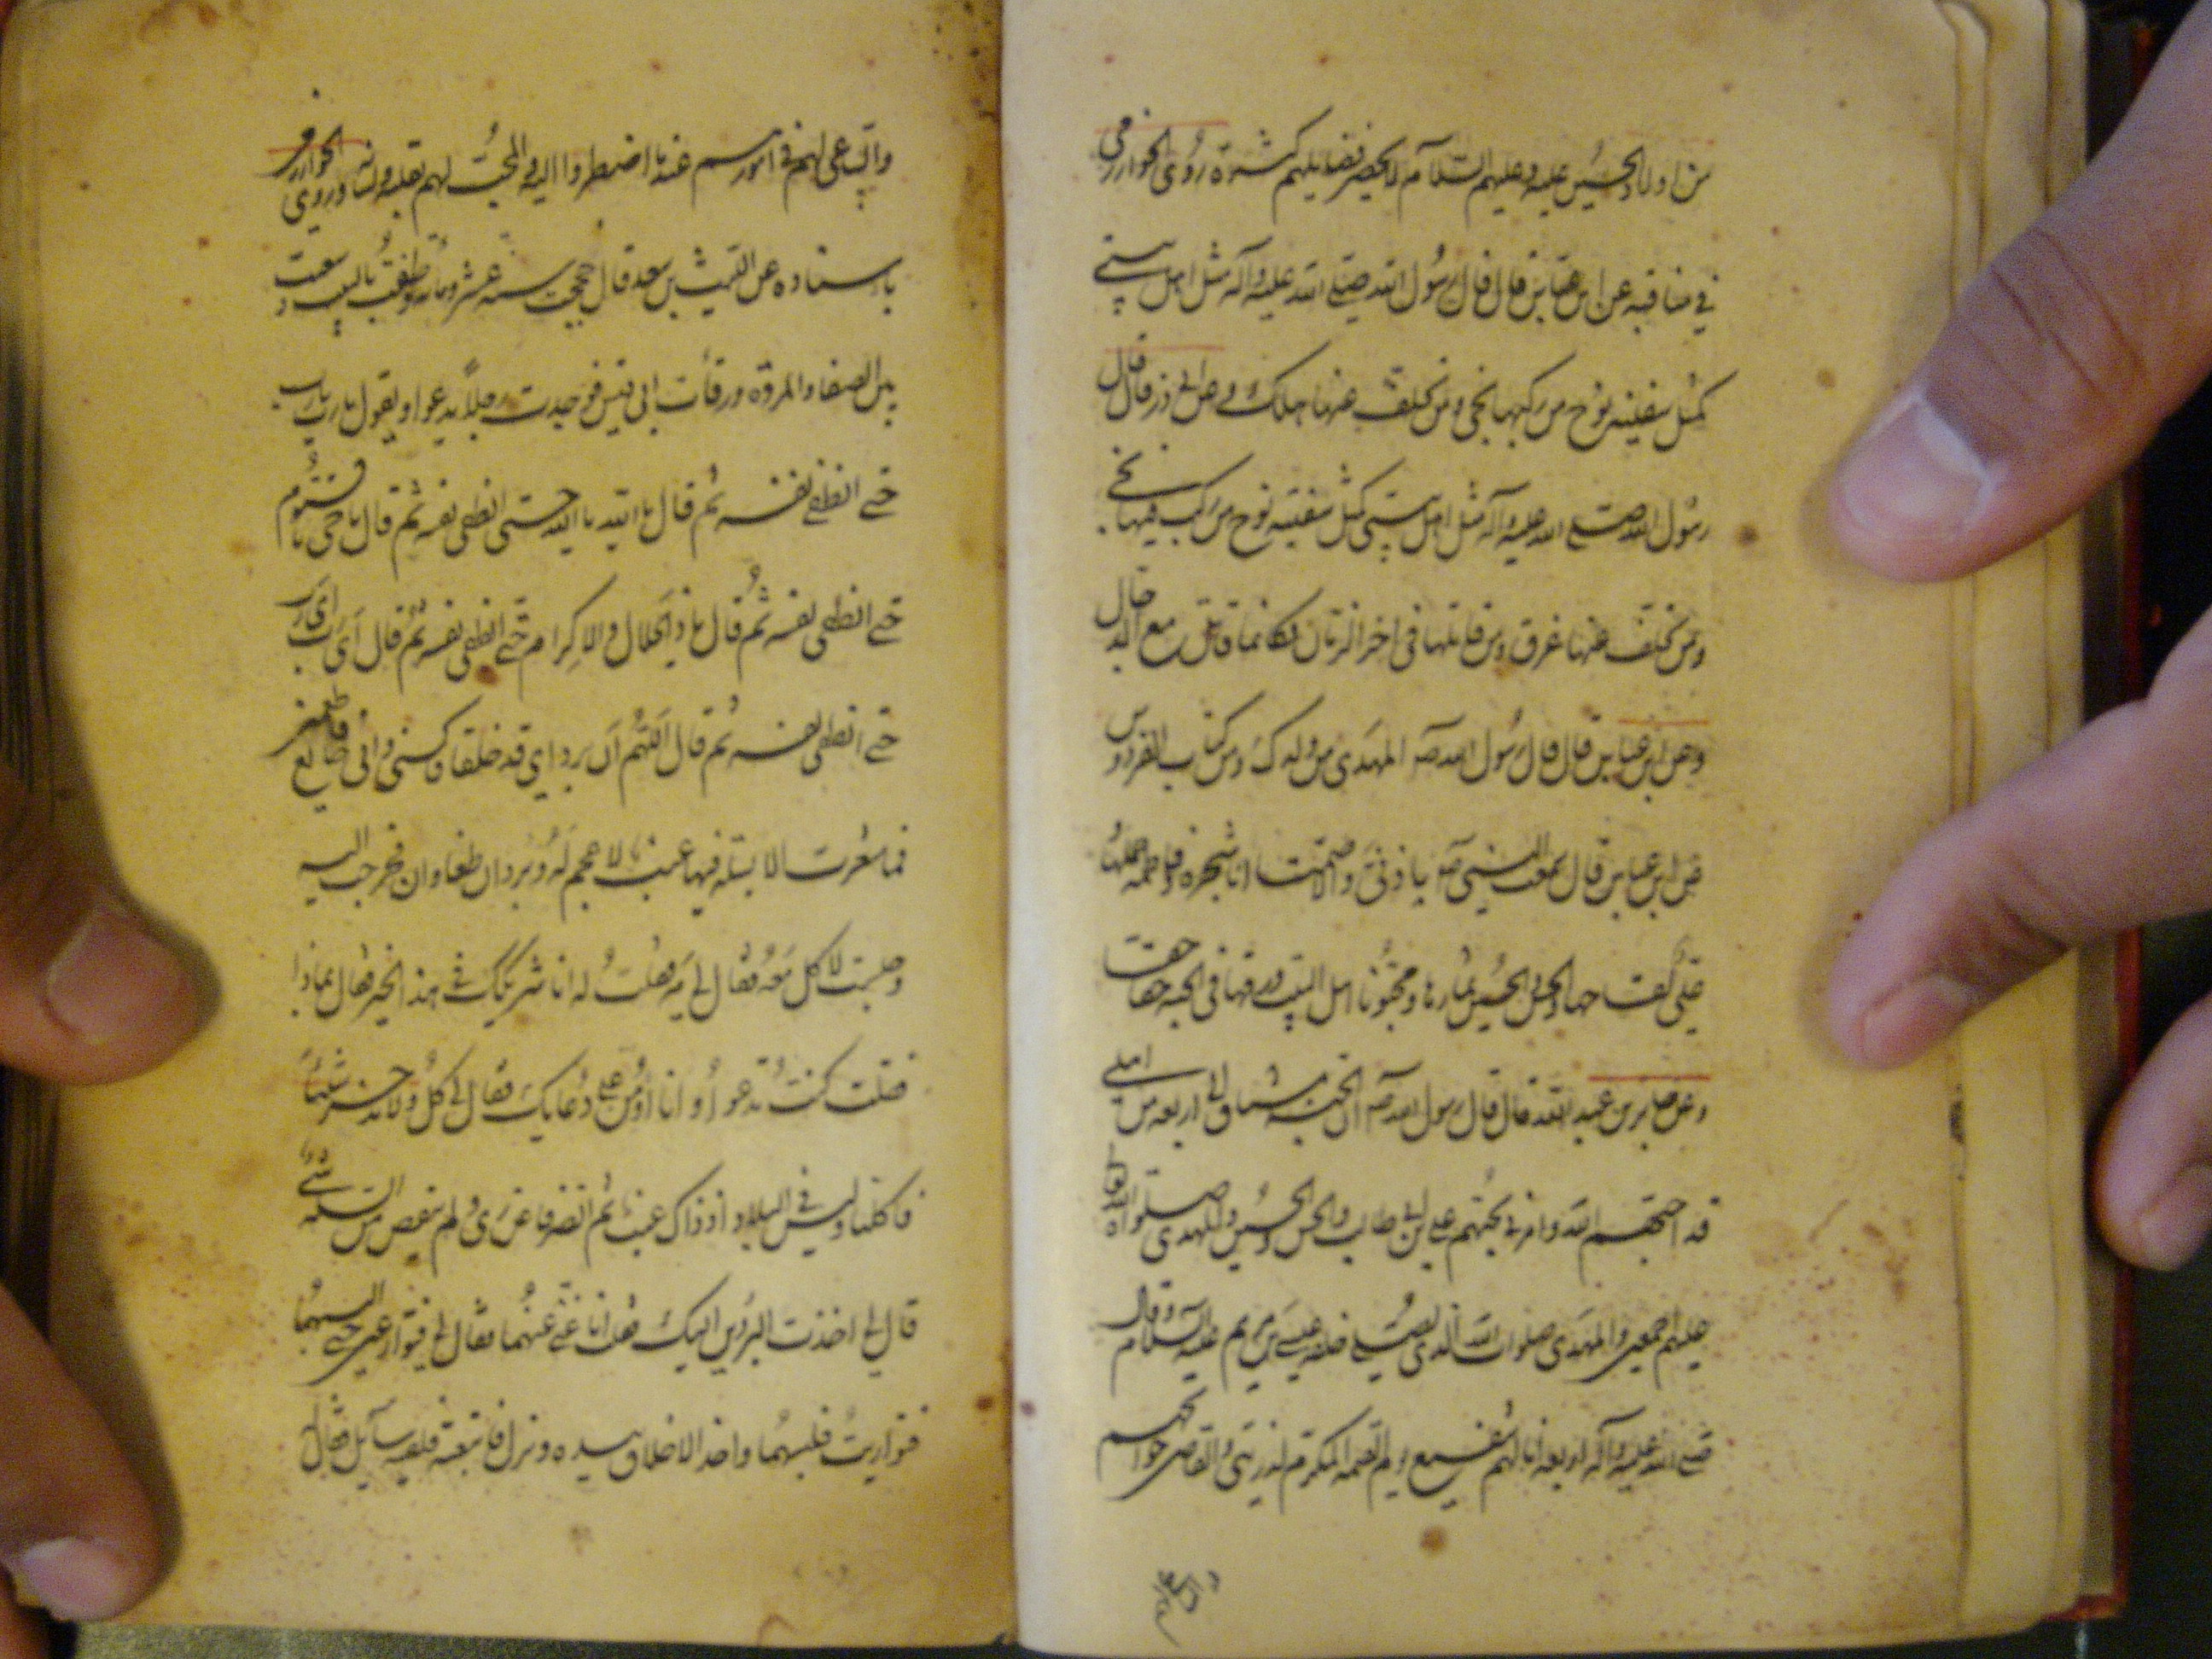 من اولاد الحسين عليه وعليهم السلام لا تحصر فضايلهم كثرة روى الخوارزمى
فى مناقبه عن ابن عباس قال قال رسول الله صلى الله عليه وآله مثل اهل بيتى
كمثل سفينة نوح من ركبها نجى ومن تخلف عنها هلك وعن ابى ذر قال قال
رسول الله صلى الله عليه وآله مثل اهل بيتى كمثل سفينة نوح من ركب فيها نجى
ومن تخلف عنها غرق ومن قاتلها فى اخر الزمان فكانما قاتل مع الدجال
وعن ابن عباس قال قال رسول الله صه المهدى من ولدك ومن كتاب الفردوس
عن ابن عباس قال سمعت النبى صه باذنى والا صمتا انا شجرة وفاطمة حملها
وعلى لقاحها والحسن والحسين ثمارها ومحبونا اهل البيت ورقها فى الجنة حقا حقا
وعن جابر بن عبد الله قال قال رسول الله صه ان الجنة تشتاق الى اربعة من اهلى
قد احبهم الله وامرنى بحبهم على بن ابى طالب والحسن والحسين والمهدى صلوات الله
عليهم اجمعين والمهدى صلوات الله الذى يصلى خلفه عيسى بن مريم عليه السلام وقال
صلى الله عليه وآله اربعة انا لهم شفيع يوم القيمة المكرم لذريتى والقاضى حوائجهم
والساعى لهم فى امورهم عند ما اضطروا اليه والمحب لهم بقلبه ولسانه وروى الخوارزمى
باسناده عن الليث بن سعد قال حججت سنة عشر ومائة وطفت بالبيت وسعيت
بين الصفا والمروة ورقأت ابى قبيس فوجدت رجلاً يدعوا ويقول يا رب يا رب
حتى انطفى نفسه ثم قال يا الله يا الله حتى انطفى نفسه ثم قال يا حى يا قيوم
حتى انطفى نفسه ثم قال يا ذا الجلال والاكرام حتى انطفى نفسه ثم قال اى رب اى رب
حتى انطفى نفسه ثم قال اللهم ان برداى قد خلقا فاكسنى وانى جايع فاطعمنى
فما شعرت الا بسلة فيها عنب لا عجم له وبردان ملقاوان فخرجت اليه
وجلست لاكل معه فقال لى مه فقلت له انا شريكك فى هذا الخير فقال بماذا
فقلت كنت تدعوا وانا اؤمن على دعايك فقال لى كل ولا تدخر شيئاً
فاكلنا وليس فى البلاد اذ ذاك عنب ثم انصرفنا عن رى ولم ينقص من السلة شئ
قال لى اخذت البردين اليك فقلت انا غنى عنهما فقال لى فتوار عنى حتى البسهما
فتواريت فلبسهما واخذ الاخلاق بيده ونزل فاتبعته فلقيه سائل فقال